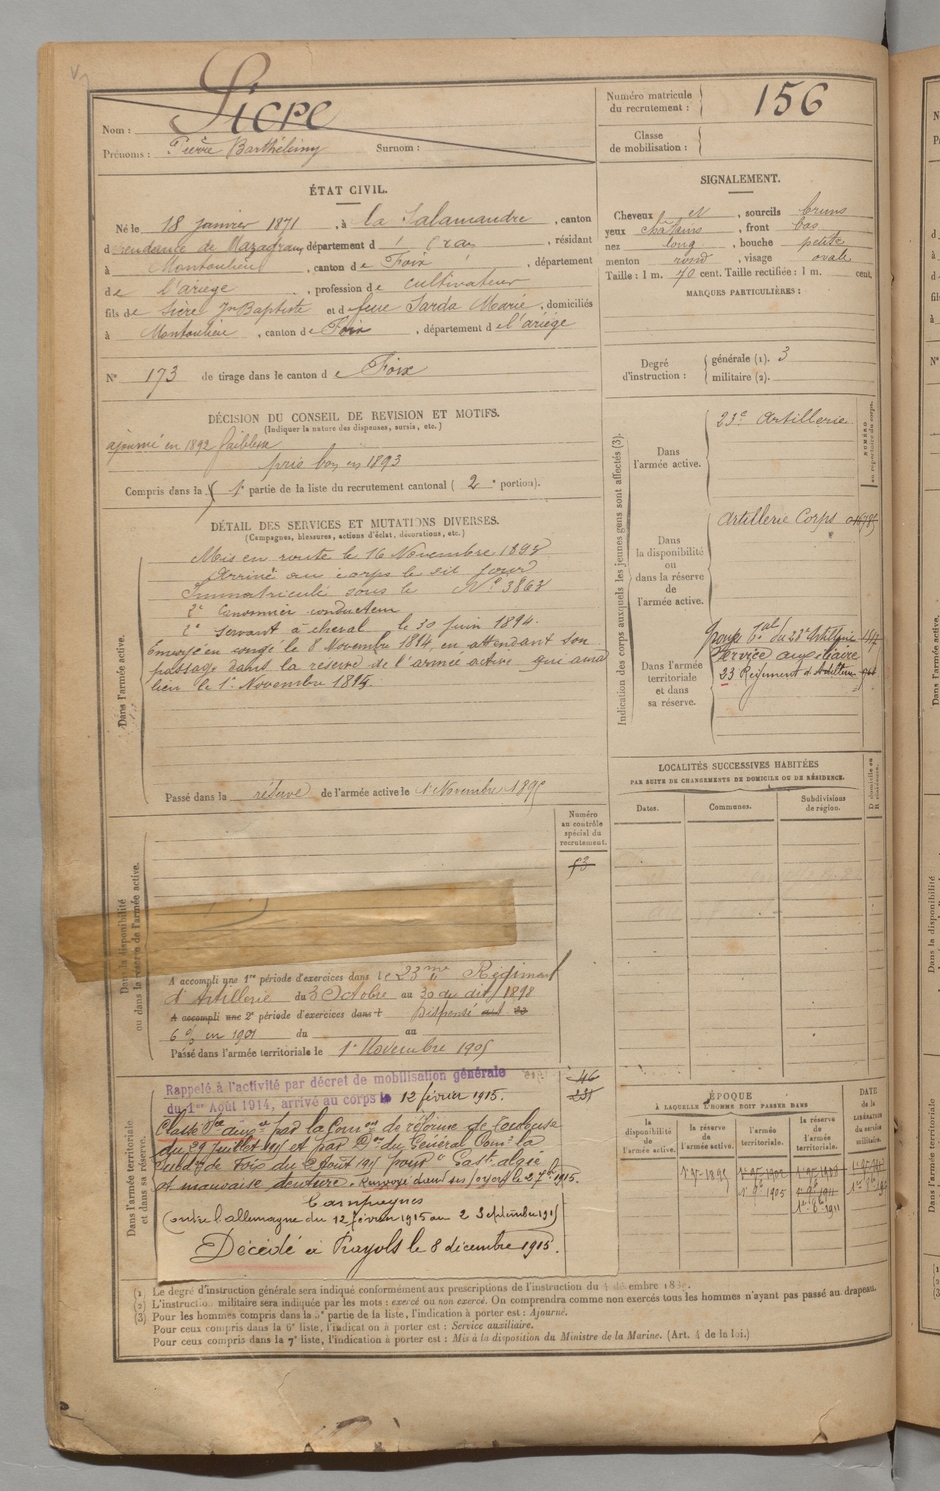 Sicre
Nom :
Prénoms : Pierre Barthélemy Surnom :
Numéro matricule du recrutement : 156
Classe de mobilisation :
ÉTAT CIVIL.
Né le 18 janvier 1871, à la Salamandre, canton
d de Mazagran, département d'Oran, résidant
à Montoulieu, canton de Foix, département
de l'ariège, profession de cultivateur
fils de Sicre Jn Baptiste et de feue Sarda Marie, domiciliés
à Montoulieu, canton de Foix, département de l'ariège
N° 173 de tirage dans le canton de Foix
SIGNALEMENT.
Cheveux et, sourcils bruns
yeux chatains, front bas
nez long, bouche petite
menton rond, visage ovale
Taille : 1 m. 70 cent. Taille rectifiée : 1 m. cent.
MARQUES PARTICULIÈRES :
Degré d'instruction : générale (1). 3
militaire (2).
DÉCISION DU CONSEIL DE REVISION ET MOTIFS.
(Indiquer la nature des dispenses, sursis, etc.)
ajourné en 1892 faiblesse
pris bon en 1893
Compris dans la 1e partie de la liste du recrutement cantonal ( 2e portion).
DÉTAIL DES SERVICES ET MUTATIONS DIVERSES.
(Campagnes, blessures, actions d'éclat, décorations, etc.)
Dans l'armée active.
Mis en route le 16 Novembre 1893
Arrivé au corps le dit jour
Immatriculé sous le N° 3863
2e Canonnier conducteur
2e Servant à cheval le 30 juin 1894.
Envoyé en congé le 8 Novembre 1894, en attendant son
passage dans la réserve de l'armée active que aura
lieu le 1er Novembre 1895.
Passé dans la réserve de l'armée active le 1er Novembre 1895
Indication des corps auxquels les jeunes gens sont affectés (3).
NUMÉRO au répertoire du corps.
Dans l'armée active.
23e Artillerie
Dans la disponibilité ou dans la réserve de l'armée active.
Artillerie Corps
Dans l'armée territoriale et dans sa réserve.
Groupe tal du 23e Artillerie
Service auxiliaire
23 Régiment d'Artillerie
LOCALITÉS SUCCESSIVES HABITÉES
PAR SUITE DE CHANGEMENTS DE DOMICILE OU DE RÉSIDENCE.
Dates. Communes. Subdivisions de région. D. domicile ou R. résidence.
Numéro au contrôle spécial du recrutement.
Dans la disponibilité ou dans la réserve de l'armée active.
A accompli une 1re période d'exercices dans le 23me Régiment
d'Artillerie du 3 Octobre au 30 du dit 1898
A accompli une 2e période d'exercices dans Dispensé
6 en 1901 du au
Passé dans l'armée territoriale le 1er Novembre 1905
Dans l'armée territoriale et dans sa réserve.
Rappelé à l'activité par décret de mobilisation générale
du 1er Août 1914, arrivé au corps le 12 février 1915.
46
Classé Sce auxre par la Comon de réforme de Toulouse
du 29 juillet 1915 et par Don du Général Comt la
Subdon de Foix du Août 1915 pour Gastralgie
et mauvaise denture. Renvoyé dans ses foyers le 2 7bre 1915.
Campagnes
Contre l'allemagne du 12 février 1915 au 2 Septembre 1915
Décédé à Prayols le 8 décembre 1915.
ÉPOQUE
À LAQUELLE L'HOMME DOIT PASSER DANS
la disponibilité de l'armée active. la réserve de l'armée active. l'armée territoriale. la réserve de l'armée territoriale. DATE de la LIBÉRATION du service militaire.
(1) Le degré d'instruction générale sera indiqué conformément aux prescriptions de l'instruction du
(2) L'instruction militaire sera indiquée par les mots : exercé ou non exercé. On comprendra comme non exercés tous les hommes n'ayant pas passé au drapeau.
(3) Pour les hommes compris dans la 5e partie de la liste, l'indication à porter est : Ajourné.
Pour ceux compris dans la 6e liste, l'indication à porter est : Service auxiliaire.
Pour ceux compris dans la 7e liste, l'indication à porter est : Mis à la disposition du Ministre de la Marine. (Art. 4 de la loi.)